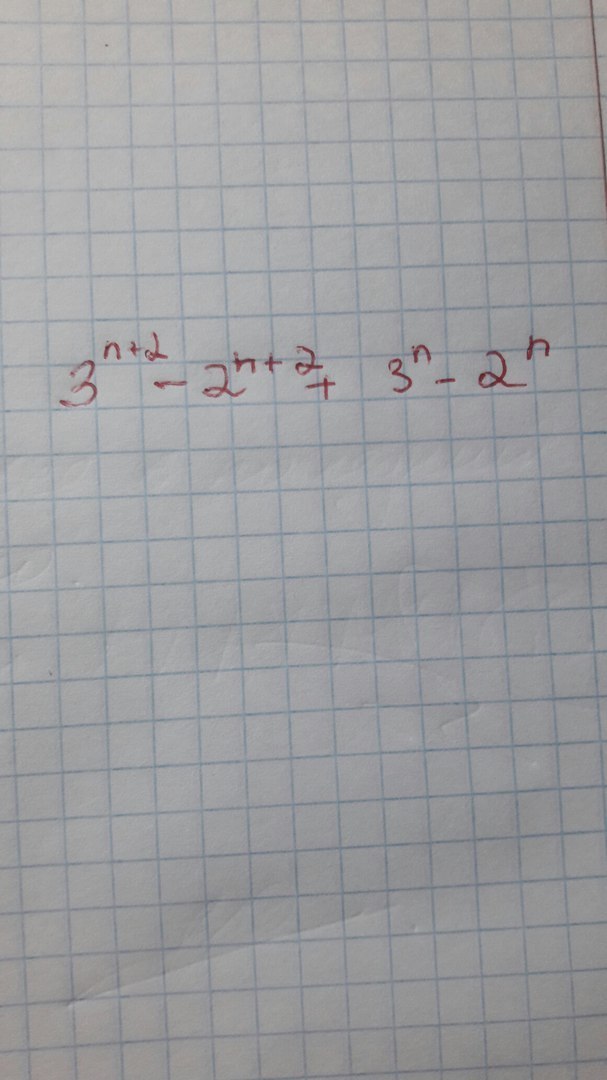 3^{n+2} - 2^{n+2} + 3^n - 2^n